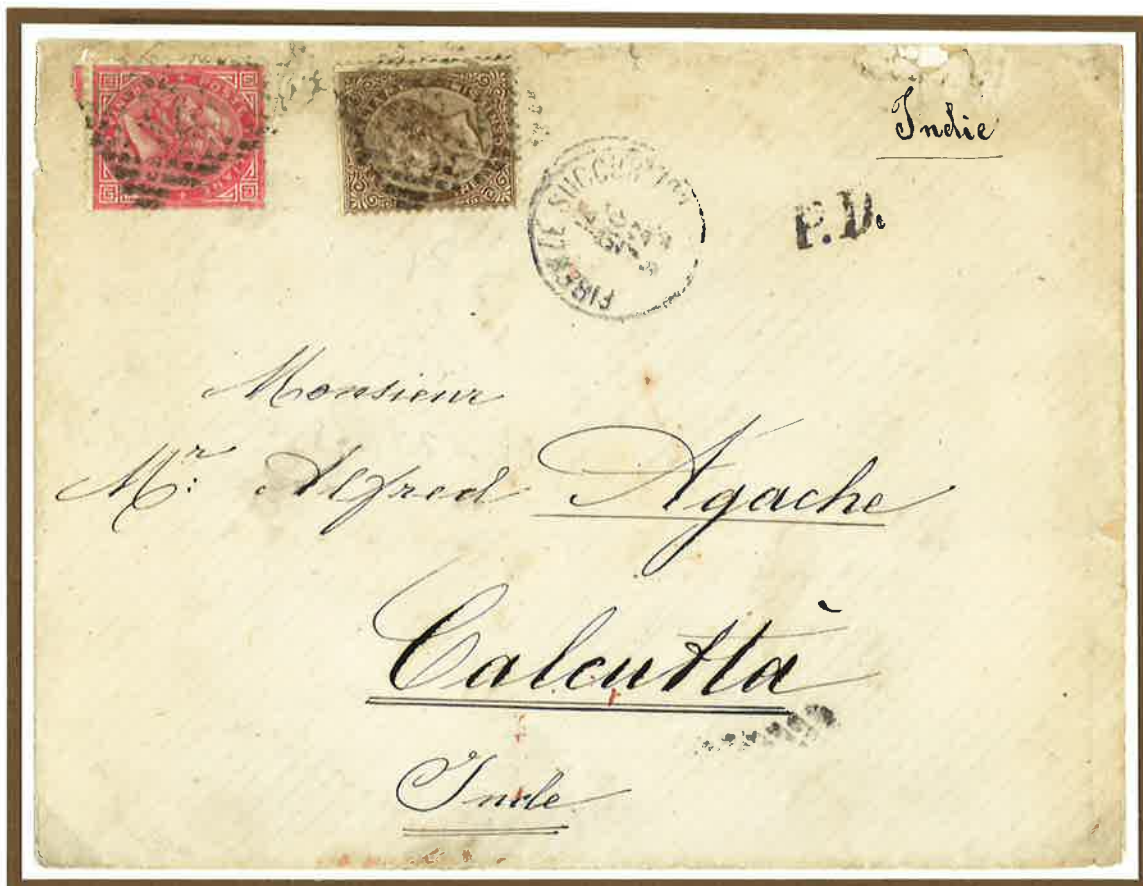 Indie
P.D.
FIRENZE SUCCURSALE
Monsieur
Mr: Alfred Agache
Calcuttà
Inde